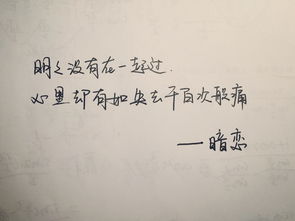 明明没有在一起过.
心里却有如失去千百次般痛
——暗恋